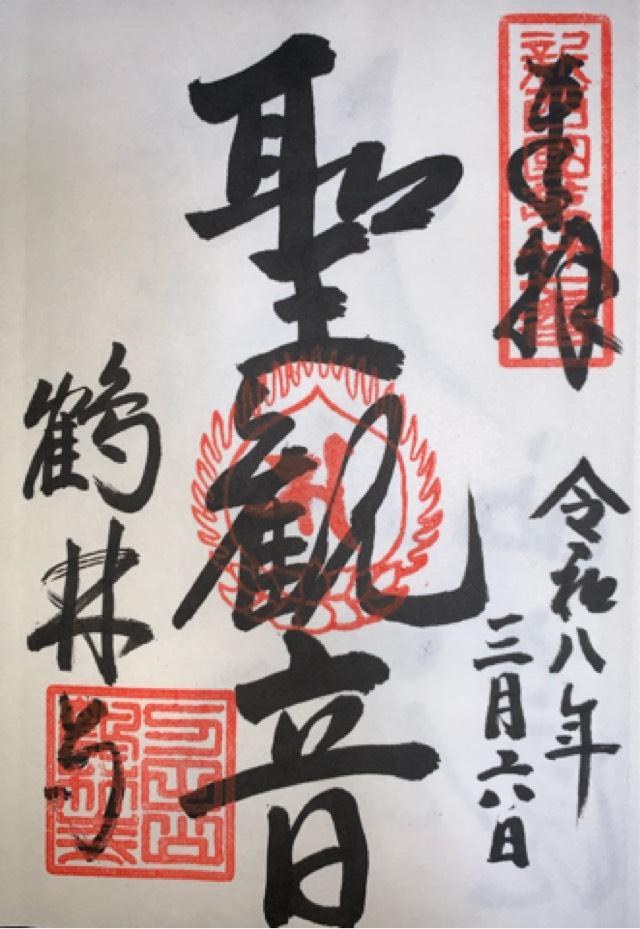 奉拝
令和八年
三月六日
聖観音
鶴林寺